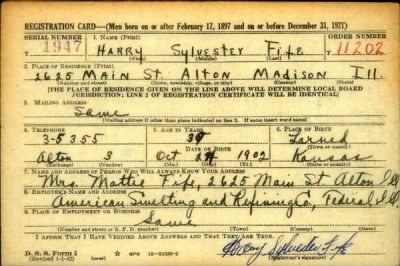 REGISTRATION CARD—(Men born on or after February 17, 1897 and on or before December 31, 1921)
SERIAL NUMBER 1. NAME (Print) ORDER NUMBER
1947 HARRY Sylvester Fife 11202
(First) (Middle) (Last)
2. PLACE OF RESIDENCE (Print)
2625 Main St. Alton Madison Ill.
(Number and street) (Town, township, village, or city) (County) (State)
[THE PLACE OF RESIDENCE GIVEN ON THE LINE ABOVE WILL DETERMINE LOCAL BOARD
JURISDICTION; LINE 2 OF REGISTRATION CERTIFICATE WILL BE IDENTICAL]
3. MAILING ADDRESS
Same
[Mailing address if other than place indicated on line 2. If same insert word same]
4. TELEPHONE 5. AGE IN YEARS 6. PLACE OF BIRTH
3-5355 39 Larned
DATE OF BIRTH (Town or county)
Alton 3 Oct 1902 Kansas
(Exchange) (Number) (Mo.) (Day) (Yr.) (State or country)
7. NAME AND ADDRESS OF PERSON WHO WILL ALWAYS KNOW YOUR ADDRESS
Mrs Mattie Fife, 2625 Main St Alton Ill
8. EMPLOYER'S NAME AND ADDRESS
American Smelting and Refining Co, Federal, Ill.
9. PLACE OF EMPLOYMENT OR BUSINESS
Same
(Number and street or R. F. D. number) (Town) (County) (State)
I AFFIRM THAT I HAVE VERIFIED ABOVE ANSWERS AND THAT THEY ARE TRUE.
D. S. S. Form 1
(Revised 1-1-42) (over)
Harry Sylvester Fife